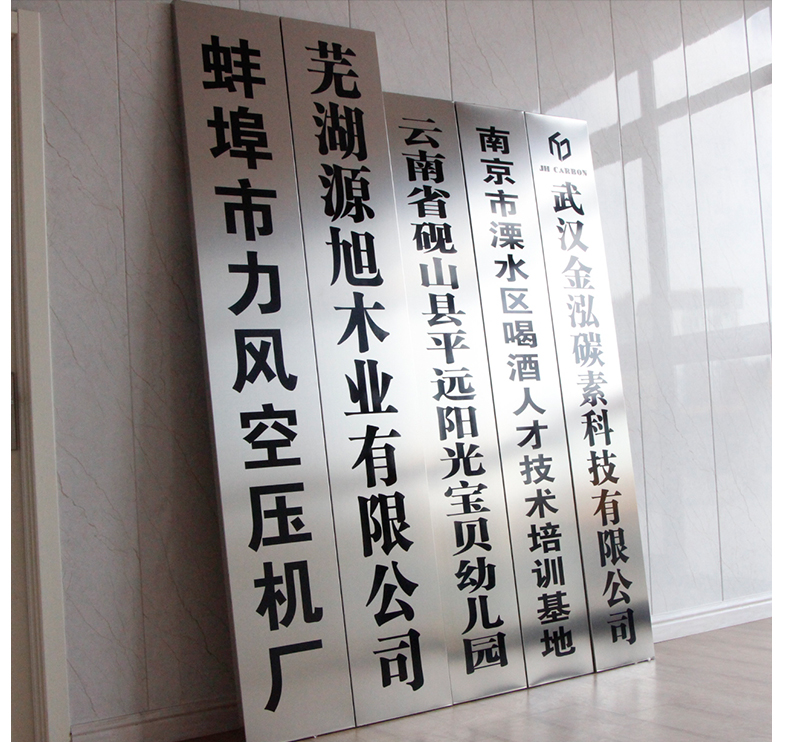 蚌埠市力风空压机厂
芜湖源旭木业有限公司
云南省砚山县平远阳光宝贝幼儿园
南京市溧水区喝酒人才技术培训基地
JH CARBON
武汉金泓碳素科技有限公司